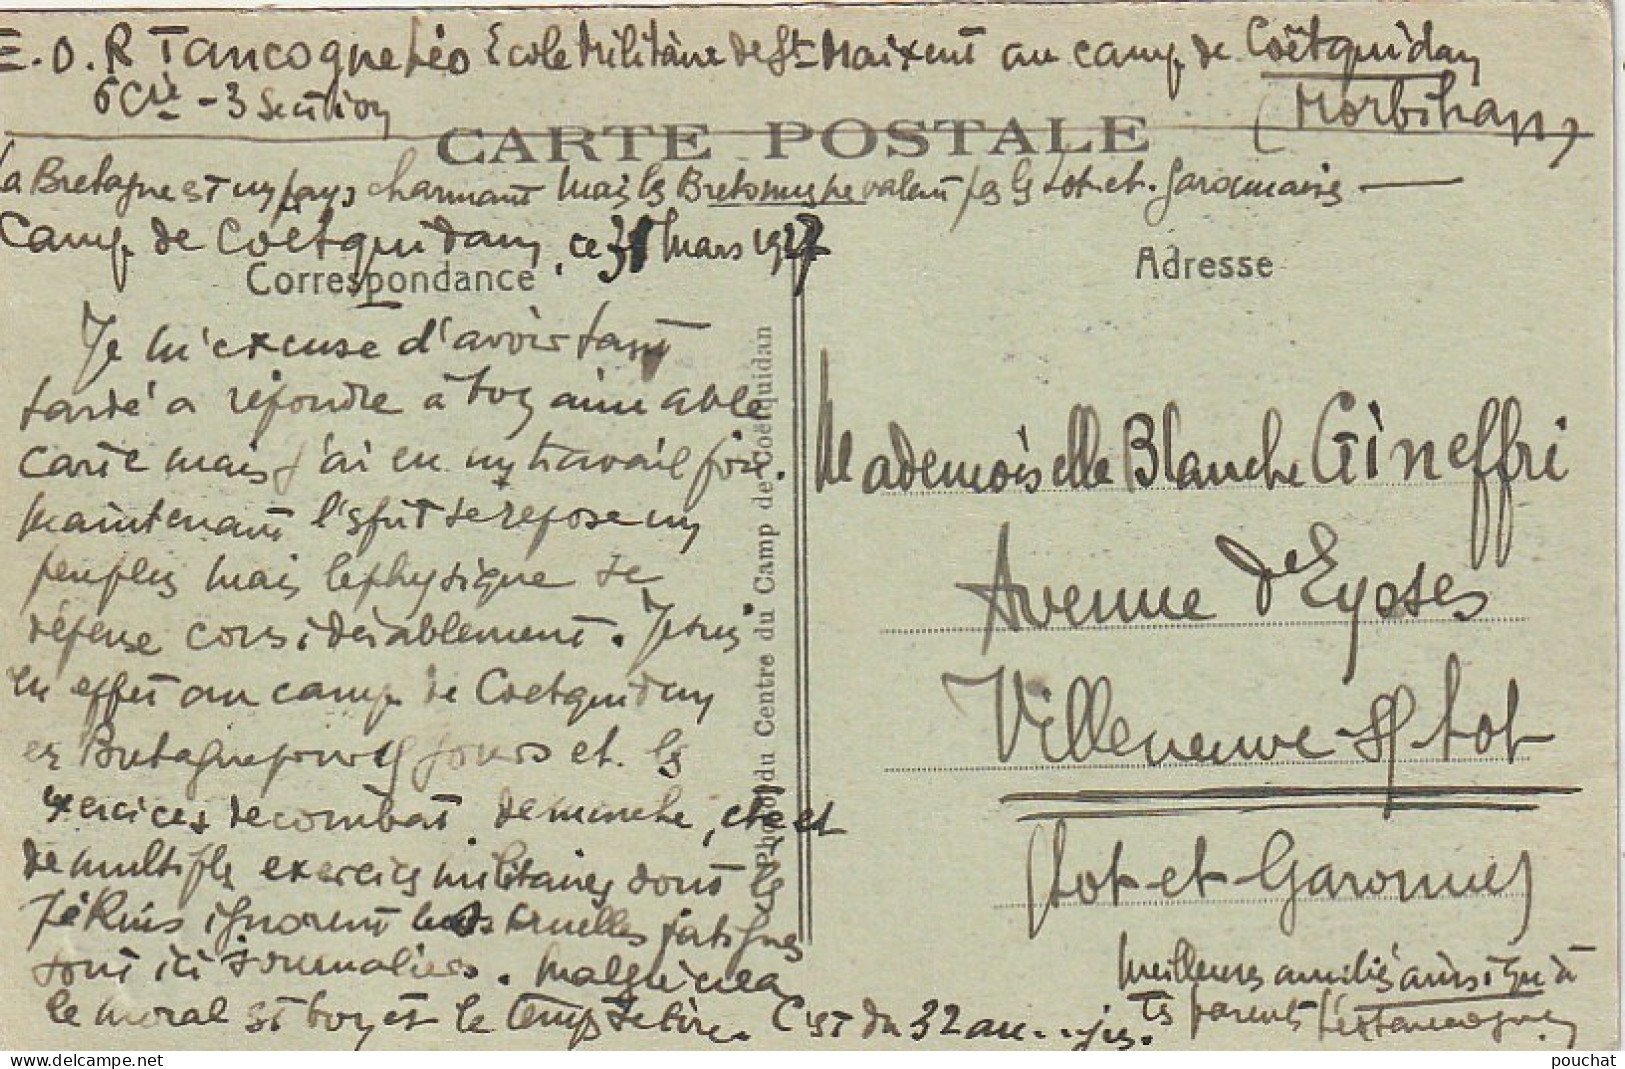 E.O.R Tancogne Léo Ecole Militaire de St Maixent au camp de Coëtquidan
6 Cie - 3 Section
(Morbihan)
CARTE POSTALE
La Bretagne est un pays charmant mais les Bretons ne valent pas les Lot-et-Garonnais
Camp de Coëtquidan, ce 31 Mars 1927
Correspondance
Adresse
Je m'excuse d'avoir tant
tardé a répondre à ton aimable
carte mais j'ai eu un travail fou.
Maintenant l'esprit se repose un
peu plus mais le physique se
dépense considérablement. Je suis
en effet au camp de Coetquidan
en Bretagne pour jours et les
exercices de combat, de marche, etc et
de multiples exercices militaires dont les
Requis ignorent les cruelles fatigues
sont ici journaliers. Malgré cela
le moral est bon et le temps se tire. C'est du 32 au jus.
Mademoiselle Blanche Gineffri
Avenue d'Eysses
Villeneuve s/ Lot
(Lot-et-Garonne)
Meilleures amitiés ainsi qu'à
tes parents Léo Tancogne
Photo du Centre du Camp de Coëtquidan
pouchat